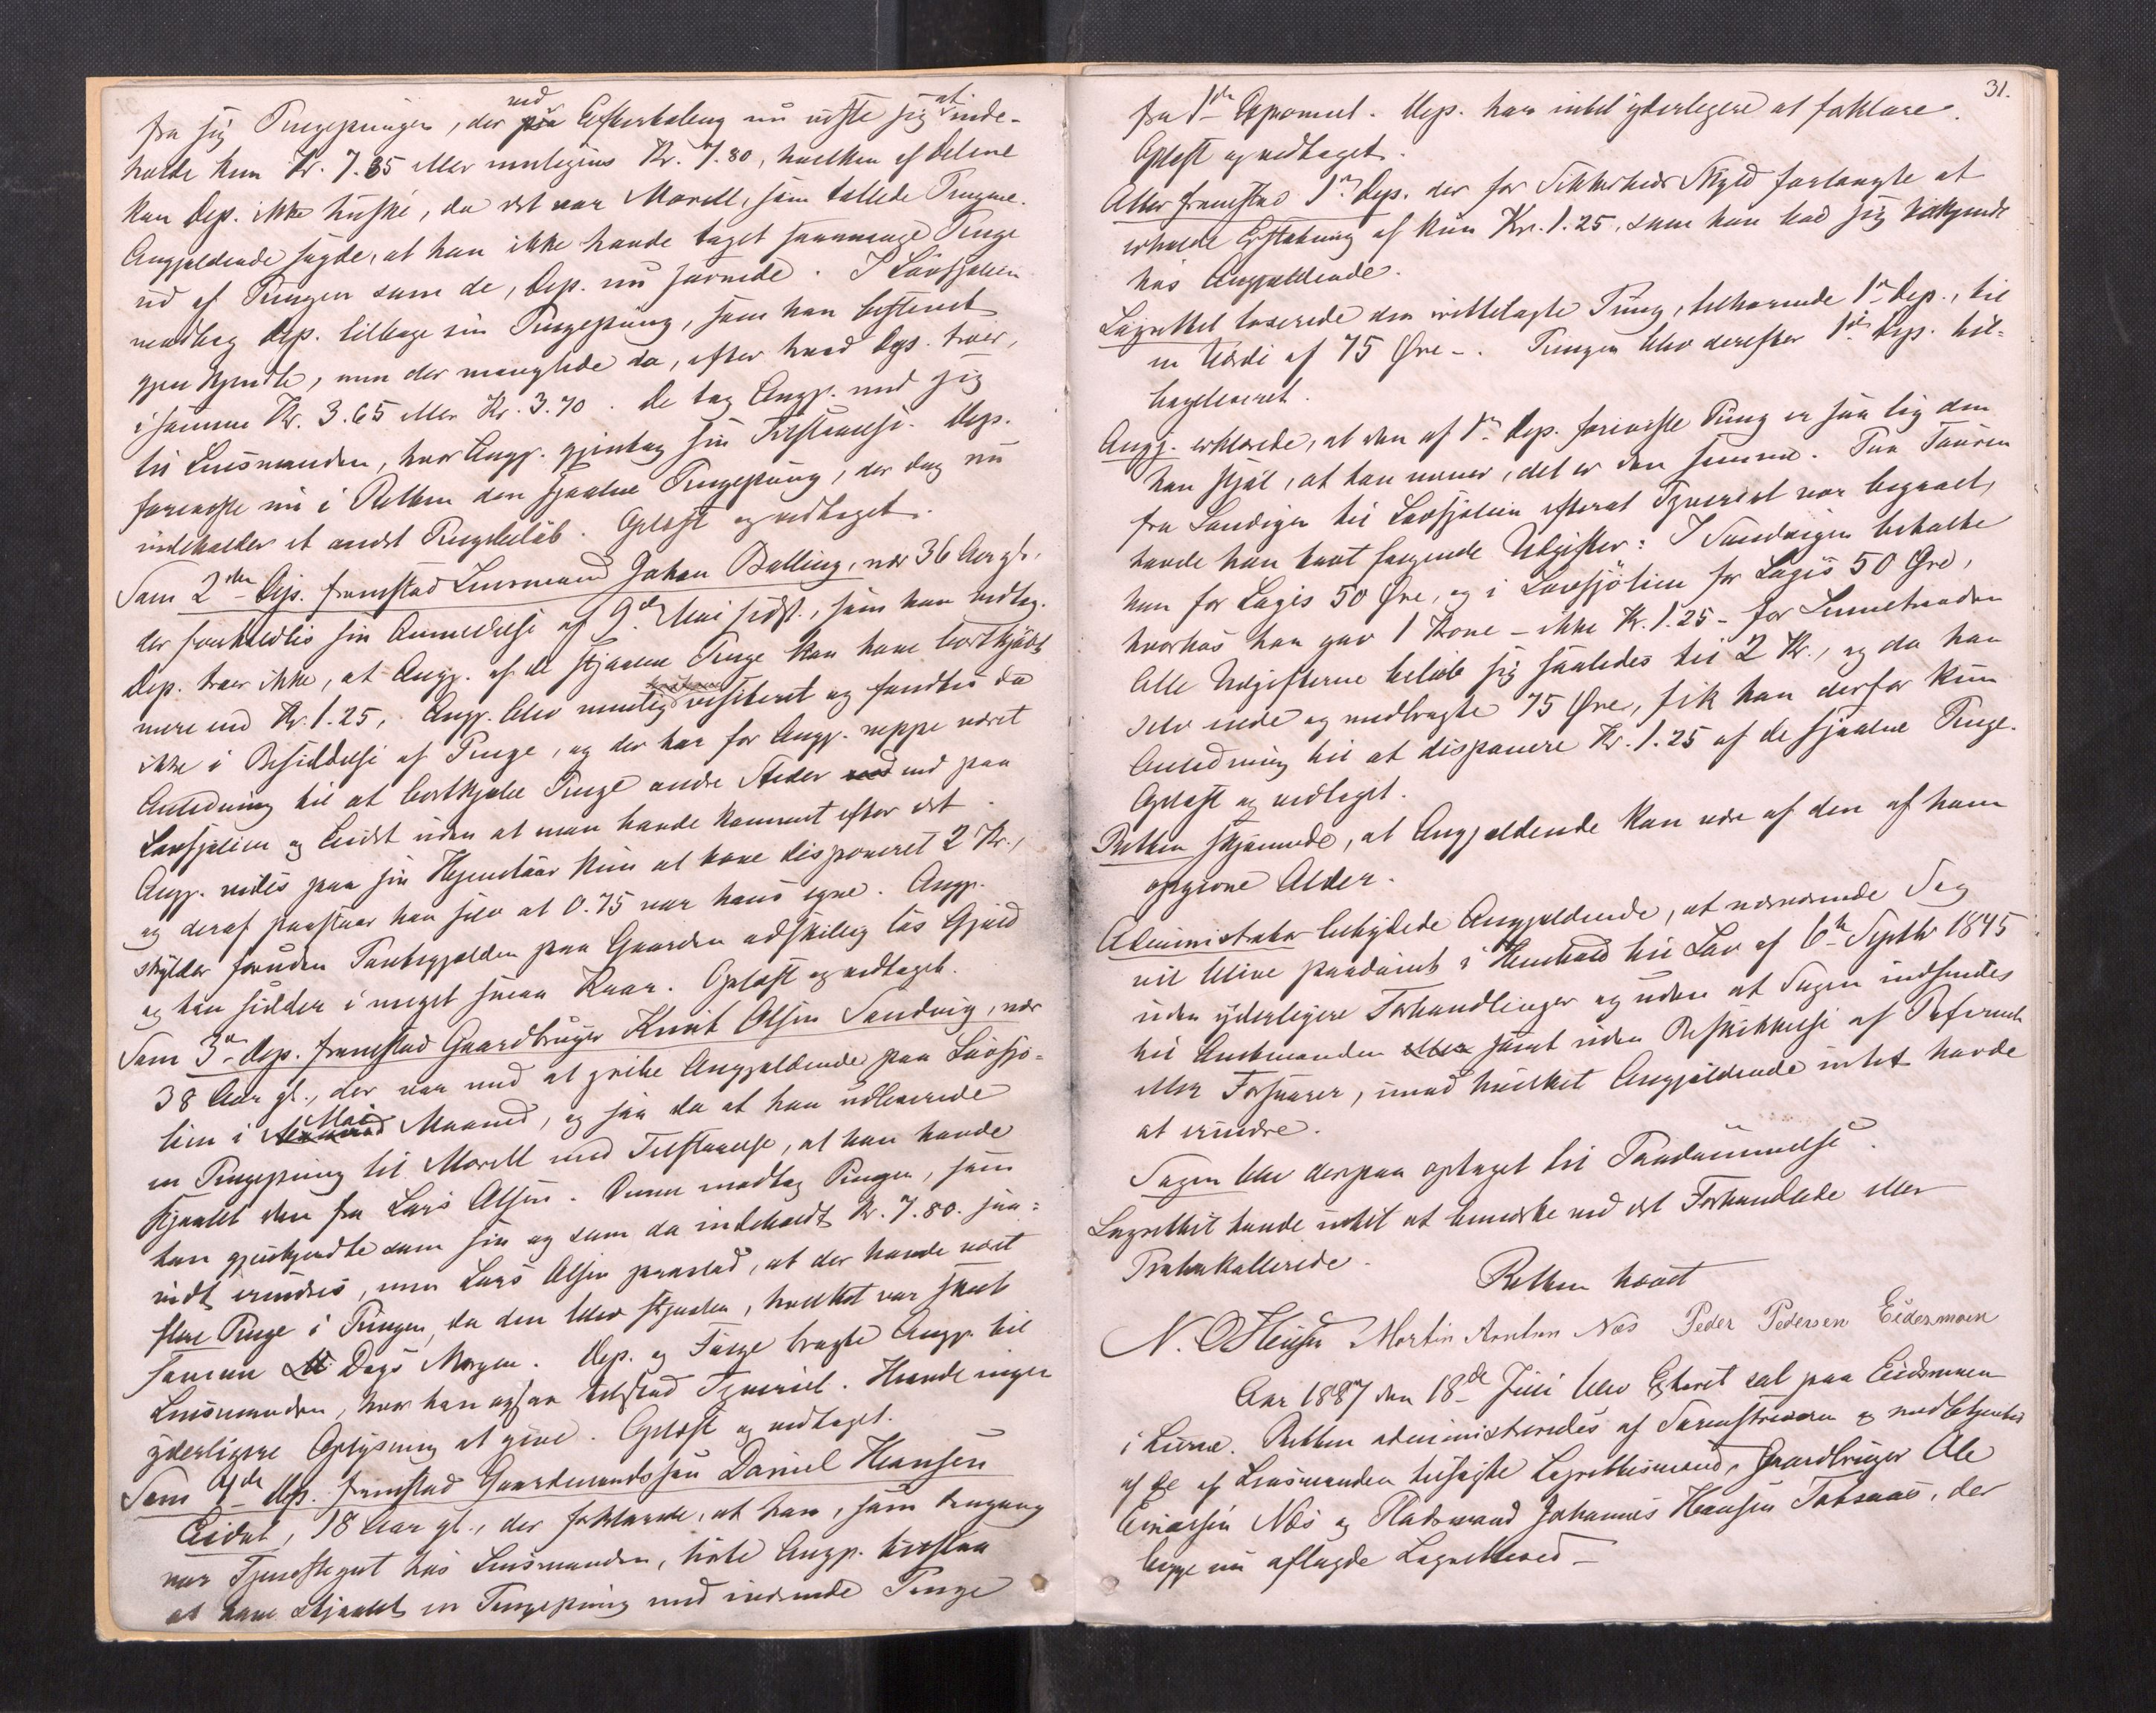 fra sig Pengepungen, der ved Eftertælling nu viste sig at inde-
holde kun Kr. 7.85 eller muligens Kr. 7.80, hvilken af Delene
kan Dep. ikke huske, da det var Morell, som tællede Pengene.
Angjældende sagde, at han ikke havde taget saamange Penge
ud af Pungen som de, Dep. nu savnede. I Låvsjølien
modtog Dep. tilbage sin Pengepung, som han bestemt
gjenkjendte, men der manglede da, efter hvad Dep. troer,
i samme Kr. 3.65 eller Kr. 3.70. De tog Angj. med sig
til Lensmanden, hvor Angj. gjentog sin Tilstaaelse. Dep.
foreviste nu i Retten den stjaalne Pengepung, der dog nu
indeholder et andet Pengebeløb. Oplæst og vedtaget.
Som 2den Dep. fremstod Lensmand Johan Belling, nær 36 Aar gl.,
der foreholdtes sin Anmeldelse af 9de Mai sidstl., som han vedtog.
Dep. troer ikke, at Angj. af de stjaalne Penge kan have bortkjøbt
mere end Kr. 1.25, Angj. blev nemlig visiteret og fandtes da
ikke i Besiddelse af Penge, og der har for Angj. neppe været
Anledning til at bortkjøbe Penge andre Steder end paa
Låvsjølien og Eidet uden at man havde kommet efter det.
Angj. vides paa sin Hjemtour kun at have disponeret 2 Kr.,
og deraf paastaar han selv at 0.75 var hans egne. Angj.
skylder foruden Pantegjælden paa Gaarden adskillig løs Gjæld
og han sidder i meget smaa Kaar. Oplæst og vedtaget.
Som 3die Dep. fremstod Gaardbruger Knut Olsen Sandvig, nær
38 Aar gl., der var med at gribe Angjældende paa Låvsjø-
lien i Mai Maaned, og saa da at han udleverede
en Pengepung til Morell med Tilstaaelse, at han havde
stjaalet den fra Lars Olsen. Denne modtog Pungen, som
han gjenkjendte som sin og som da indeholdt Kr. 7.80. saa-
vidt erindres, men Lars Olsen paastod, at der havde været
flere Penge i Pungen, da den blev stjaalen, hvilket var skeet
samme Dags Morgen. Dep. og Følge bragte Angj. til
Lensmanden, hvor han ogsaa tilstod Tyveriet. Havde ingen
yderligere Oplysning at give. Oplæst og vedtaget.
Som 4de Dep. fremstod Gaardmandssøn Daniel Hansen
Eidet, 18 Aar gl., der forklarede, at han, som dengang
var Tjenestegut hos Lensmanden, hørte Angj. tilstaa
at have stjaalet en Pengepung med iværende Penge
31.
fra 1ste Deponent. Dep. har intet yderligere at forklare.
Oplæst og vedtaget.
Atter fremstod 1ste Dep. der for Sikkerheds Skyld forlangte at
erholde Erstatning af kun Kr. 1.25, som han bad sig tilkjendt
hos Angjældende.
Lagrettet taxerede den irettelagte Pung, tilhørende 1ste Dep., til
en Værdi af 75 Øre. Pungen blev derefter 1ste Dep. til-
bageleveret.
Angj. erklærede, at den af 1ste Dep. foreviste Pung er saa lig den
han stjal, at han mener, det er den samme. Paa Touren
fra Sandvigen til Låvsjølien efterat Tyveriet var begaaet,
havde han havt følgende Udgifter: I Sandvigen betalte
han for Logis 50 Øre, og i Låvsjølien for Logis 50 Øre,
hvorhos han gav 1 Krone - ikke Kr. 1.25 - for
Alle Udgifterne beløb sig saaledes til 2 Kr., og da han
selv eiede og medbragte 75 Øre, fik han derfor kun
Anledning til at disponere Kr. 1.25 af de stjaalne Penge.
Oplæst og vedtaget.
Retten skjønnede, at Angjældende kan være af den af ham
opgivne Alder.
Administrator betydede Angjældende, at nærværende Sag
vil blive paadømt i Henhold til Lov af 6te Septbr 1845
uden yderligere Forhandlinger og uden at Sagen indsendes
til Amtmanden samt uden Beskikkelse af Defensor
eller Forsvarer, imod hvilket Angjældende intet havde
at erindre.
Sagen blev derpaa optaget til Paadømmelse.
Lagrettet havde intet at bemærke ved det Forhandlede eller
Protokollerede.
Retten hævet
Martin Anton Næs Peder Pedersen Eidesmoen
Aar 1887 den 18de Juni blev Extraret sat paa Eidsmoen
i Lierne. Retten administreredes af Sorenskriveren og medbetjentes
af de af Lensmanden tilsagte Lagrettesmænd, Gaardbruger Ole
Einarsen Næs og Pladsmand Johannes Hansen, der
begge nu aflagde Lagretteed -